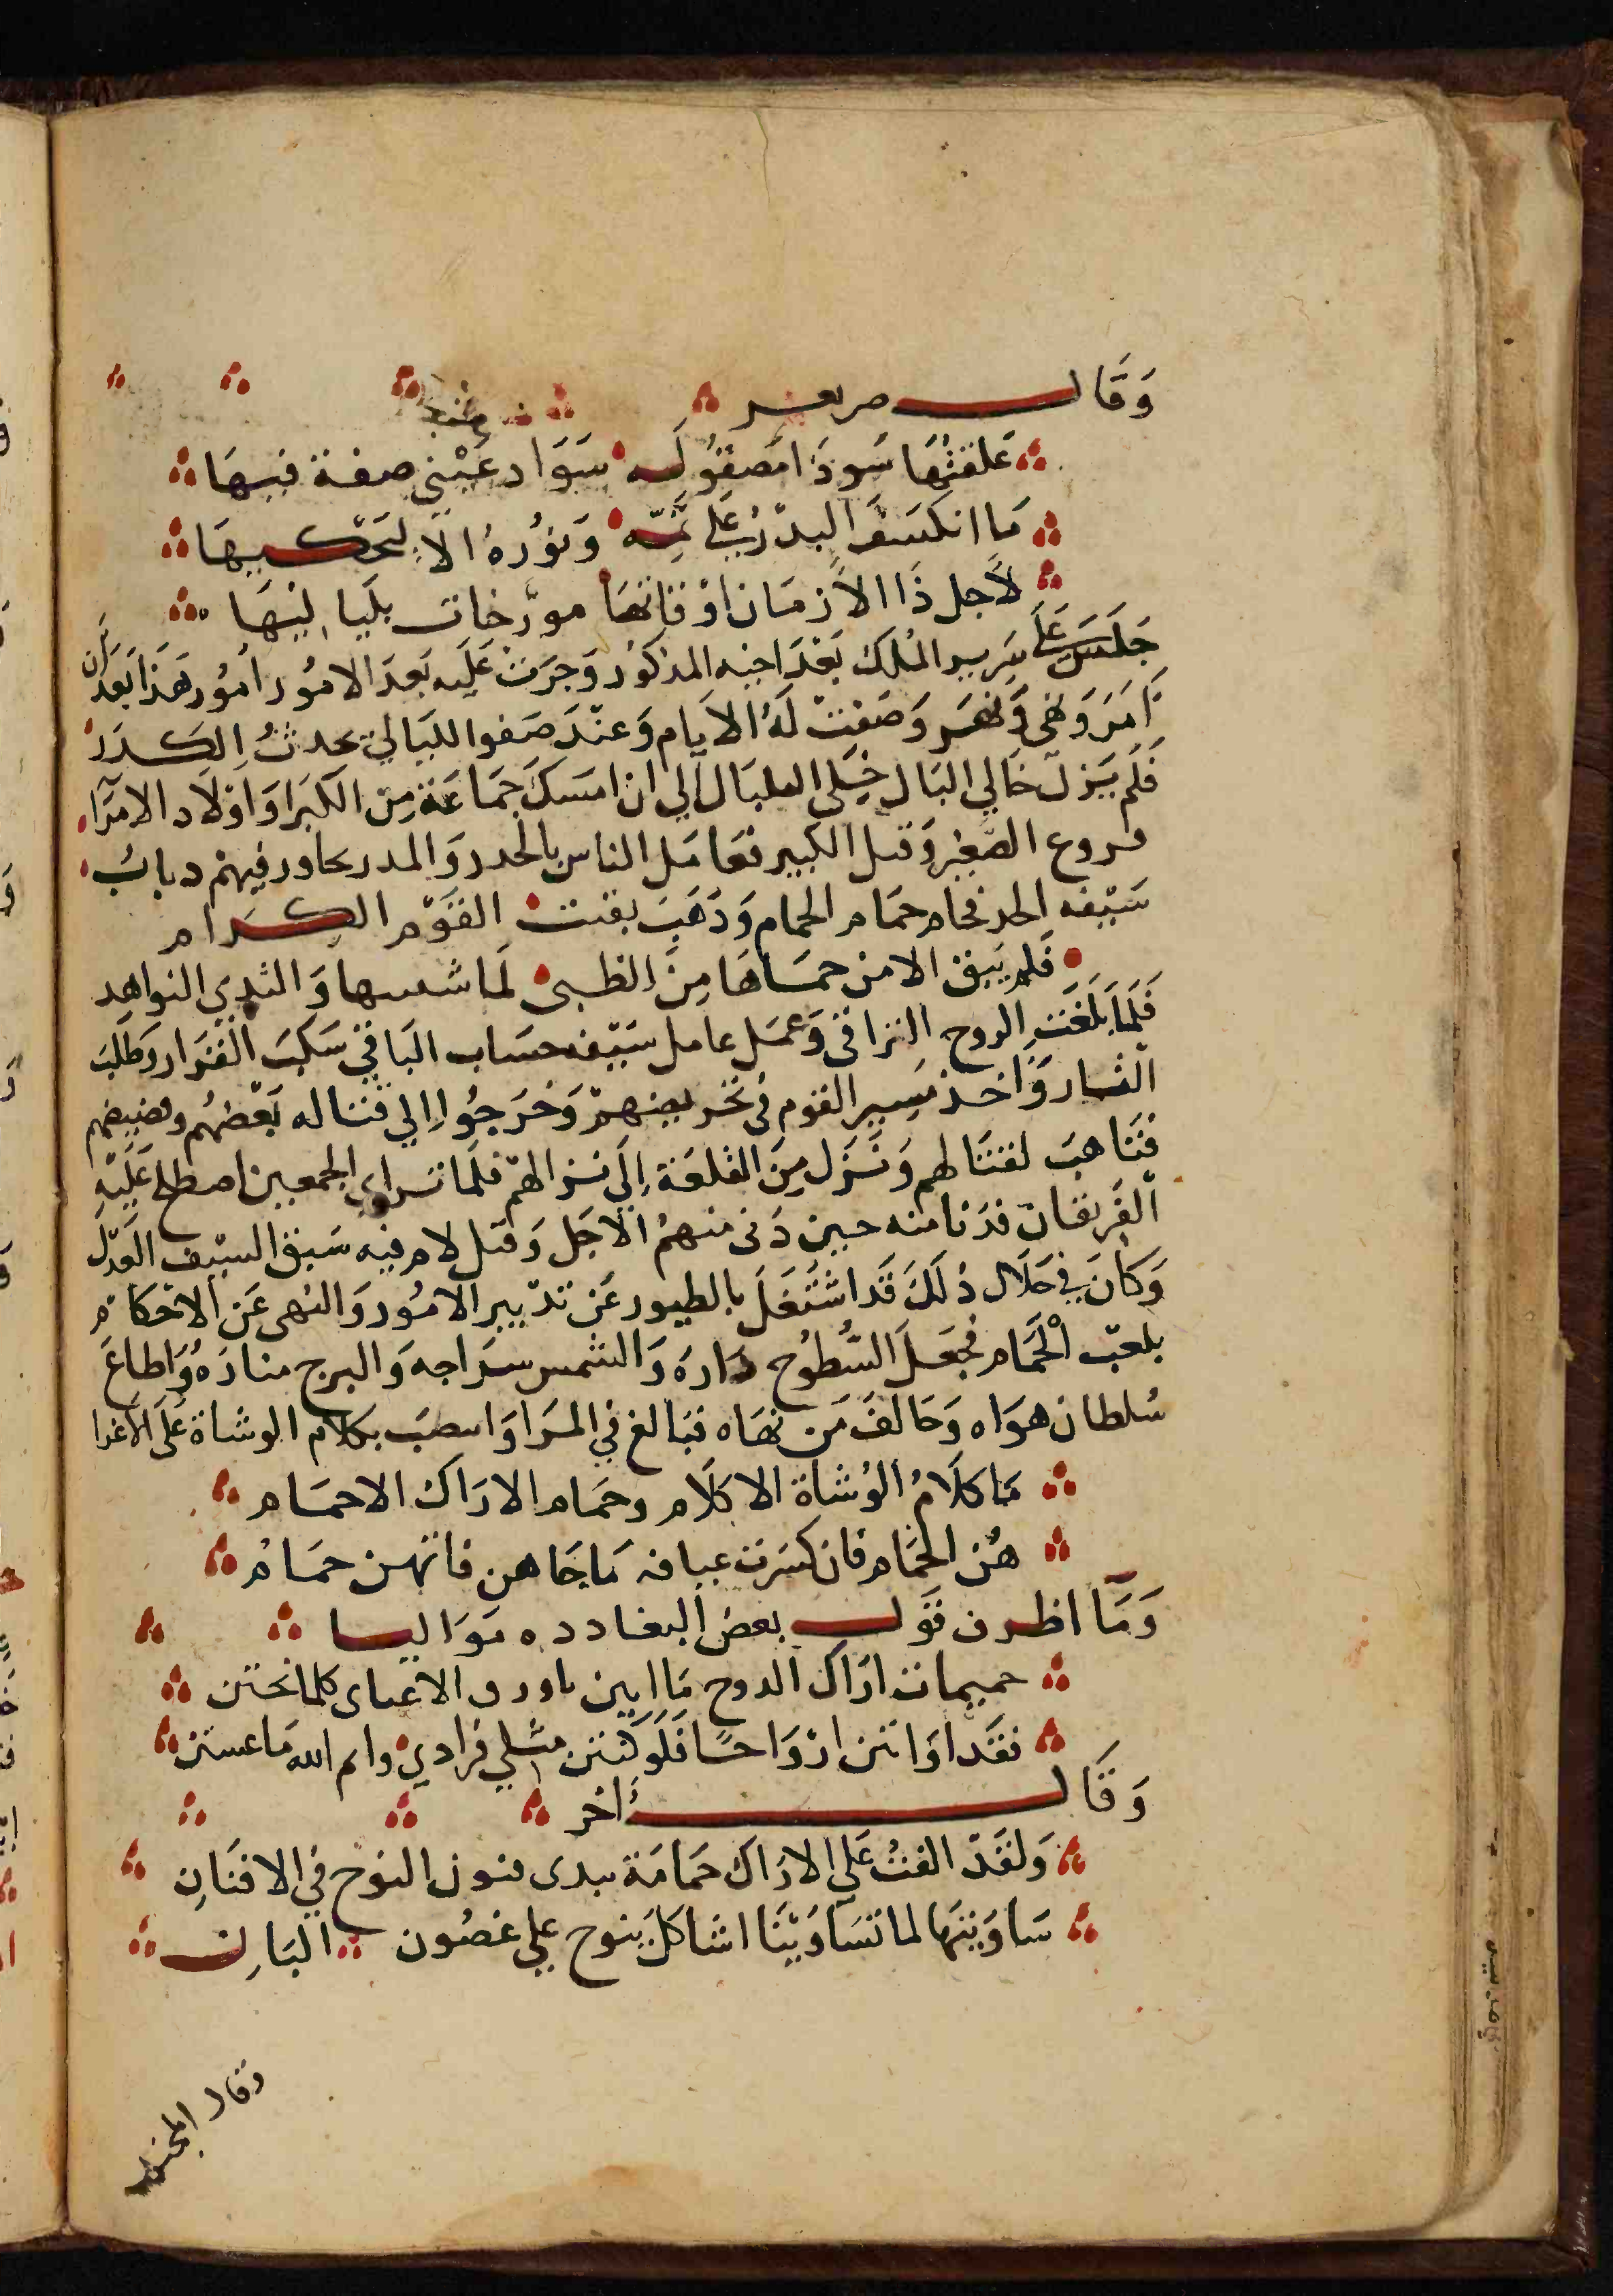 وَقَالَ صر بعر
عَلقتُهَا سَودَا مَصقُولَه سَوَاد عَيْني صفة فيهَا
مَا انكسَفَ البدْرُ عَلَى تمِّه وَنوُرهُ الاَّ ليَحْكيهَا
لاَجل ذَا الاَزمَان اوْقاتهَا مورَّخات بلَيَاليْهَا
جَلَسَ عَلَى سَرير المُلك بَعْدَ اخيه المذكوُر وَجرَتْ عَلَيه بَعدَ الامُور امُور هَذا بَعْدَ ان
اَمَرَ وَنهَى وَقهَر وَصَفتْ لَهُ الاَيام وَعنْدَ صَفوا الليَالي يحدثُ الكدَرُ
فَلَم يَزلْ خَالي البَال خَلي البلبَال الي ان امسَكَ جَمَاعَة مِنَ الكبَرَا وَاوْلاَد الامَرَآء
وروع الصَّغير وَقتل الكبير فعَامَل الناس بالحدر وَالمدر وجاور فيهمْ دبابُ
سَيْفه الحد فحام حمَام الحمام وَذهَبَ بقنت القَوْم الكرَام
فَلم يَبق الا من حمَاهَا مِنَ الظبى لمَا شفتيها وَالثدي النوَاهِد
فَلَمَا بَلَغَتِ الروح التراقى وَعمَل عامل سَيْفه حسَاب البَاقي سَكبَ القرَار وَطلَبَ
الفرار وَاخذ مسِير القوم في تحريضهمْ وَخرَجُوا الي قتاله بَعْضهُم وبضيضهم
فتَاهبَ لقتَالهم وَنَزَل مِنَ القلعَة اِلَى نزالهمْ فلَما تراي الجمعين اصطلح عَلَيْه
الفَريقان فدَنا منه حين دَنى منهمُ الاَجَل وَقتل لام فيه سَبق السيْف العَدْل
وَكانَ في خلاَل ذلكَ قَد اشْتَغَلَ بالطيور عَن تدْبير الامُور وَالنهى عَن الاحْكام
بلعب الْحَمَام فجَعلَ السُّطوُح دَارَه وَالشمس سرَاجه وَالبرج منارَهُ وَاطاعَ
سُلطان هوَاه وَخَالفَ مَن نهَاه فبَالغ في المرَا وَاسصبَ بكلاَم الوشاة عَلَى الاغرا
مَا كلاَمُ الوُشاة الا كلاَم وحمَام الارَاك الا حمَام
هُن الحمَام فان كسَرت عيافه مَا حَاهن فانهن حمَامُ
وَمَا اظرف قوَل بعضُ البغاددَه موَاليا
حميمات ارَاك الدوح مَا ابين باورق الاغصاى كلما نحتن
فقَد اوَاتن ازْوَاحًا فَلَو كنتن مثلي فرادي وايم الله مَا عستن
وَقَالَ اخر
وَلقَدْ الفتُ عَلى الارَاك حمَامَة تبدى فنون النوح في الافنَانِ
سَاوَيتهَا لما تسَاوَيْنَا اشاكل ينوح علي غصُون البَانِ
وقال المجنون